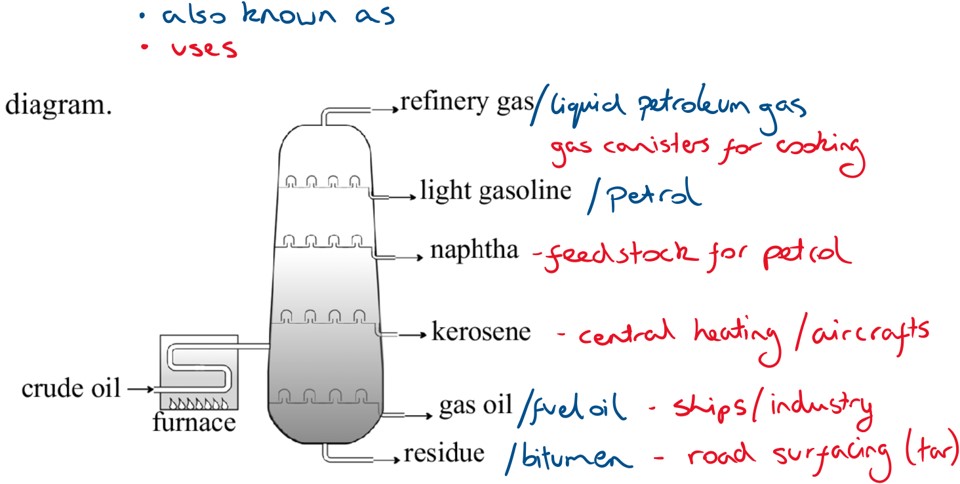 • also known as
• uses
diagram.
refinery gas/liquid petroleum gas
gas canisters for cooking
light gasoline /petrol
naphtha -feedstock for petrol
kerosene - central heating /aircrafts
crude oil
furnace
gas oil /fuel oil - ships/industry
residue /bitumen - road surfacing (tar)